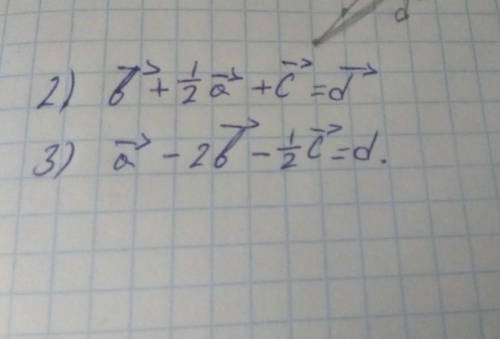 d
2) b⃗ + ½a⃗ + c⃗ = d⃗
3) a⃗ - 2b⃗ - ½c⃗ = d.